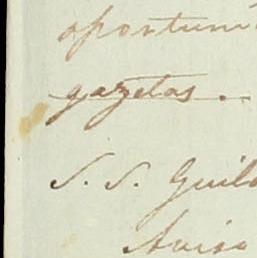 oportuni
gazetas.
S. S. Guil
Aviso